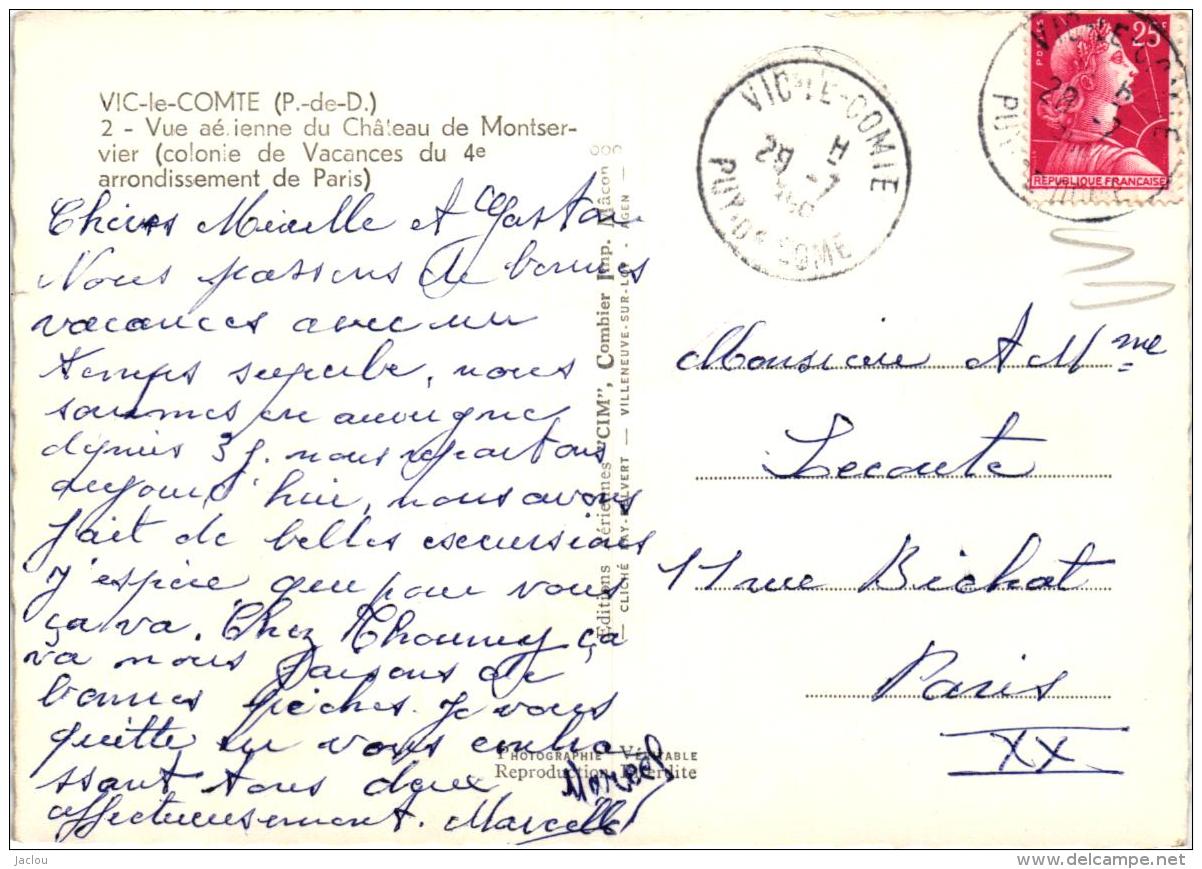 VIC-le-COMTE (P.-de-D.)
2 - Vue aérienne du Château de Montser-
vier (colonie de Vacances du 4e
arrondissement de Paris)
Chers Mireille et Gaston
Nous passons de bonnes
vacances avec un
temps superbe, nous
sommes en auvergne
depuis 3 j. nous repartons
aujourd'hui, nous avons
fait de belles excursions
J'espère que pour vous
ça va. Chez Thoumy ça
va nous faisons de
bonnes pêches. Je vous
quitte en vous embra
ssant tous deux
affectueusement. Marcelle
Marcel
Editions aériennes "CIM", Combier Imp. Mâcon
— CLICHÉ RAY-DELVERT — VILLENEUVE-SUR-LOT - AGEN —
PHOTOGRAPHIE VÉRITABLE
Reproduction Interdite
VIC-LE-COMTE
29 - 7
PUY-DE-DOME
25F
POSTES
REPUBLIQUE FRANÇAISE
VIC-LE-COMTE
29 - 7
Monsieur et Mme
Lecoute
11 rue Bichat
Paris
XX
Jaclou
www.delcampe.net